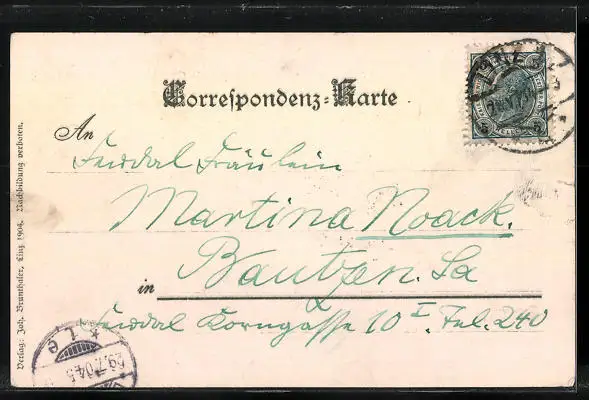 Correspondenz-Karte
An
Fräulein
Martina Noack.
Bautzen. Sa
in
Korngasse 10 I. Tel. 240
Verlag: Joh. Brunthaler, Linz 1904. Nachbildung verboten.
LINZ
29.7.04.5